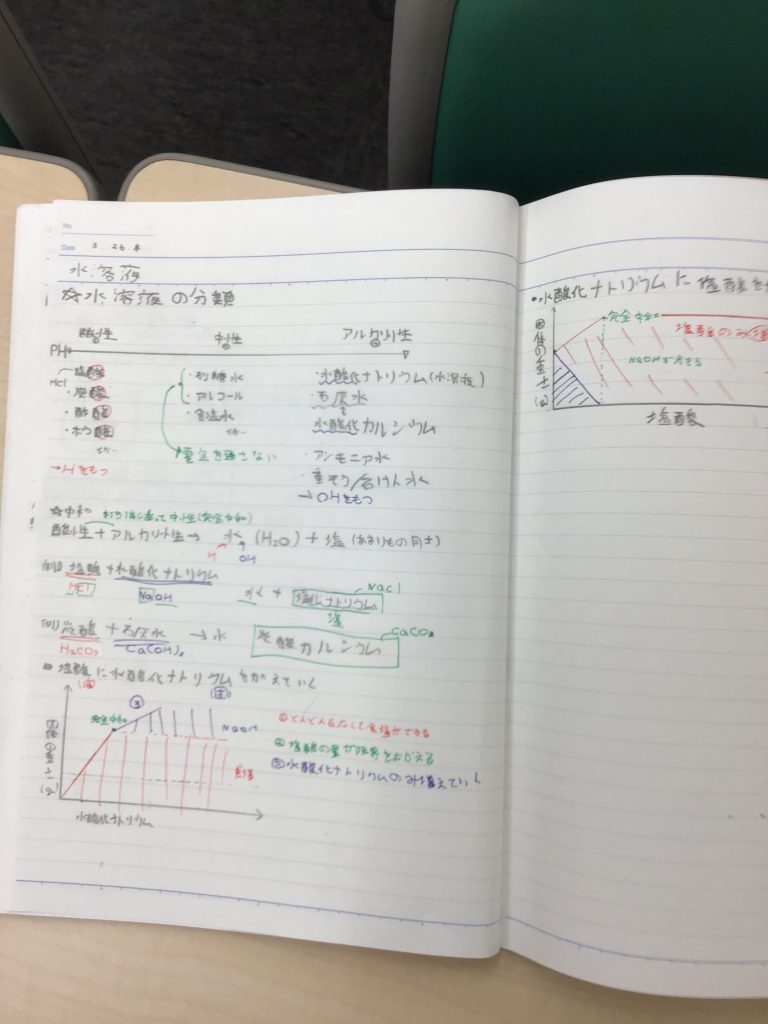 No.
Date 3 . 26 . 木
水溶液
☆水溶液の分類
酸性 中性 アルカリ性
PH
HCl 塩酸 ・砂糖水 ・水酸化ナトリウム(水溶液)
・炭酸 ・アルコール ・石灰水
・酢酸 ・食塩水 水酸化カルシウム
・ホウ酸
電気を通さない ・アンモニア水
→Hをもつ 重そう/石けん水
→OHをもつ
☆中和 打ち消し合って中性(完全中和)
酸性+アルカリ性→ 水 (H₂O) + 塩 (あまりもの同士)
H OH
(例) 塩酸+水酸化ナトリウム 水 + 塩化ナトリウム NaCl
HCl NaOH 塩
(例) 炭酸 + 石灰水 → 水 炭酸カルシウム CaCO₃
H₂CO₃ Ca(OH)₂
塩酸に水酸化ナトリウムをくわえていく
完全中和 ③ NaOH
固体の重さ(g) 食塩
水酸化ナトリウム
①どんどん反応して食塩ができる
②塩酸の量が限界をむかえる
③水酸化ナトリウムのみ増えていく
・水酸化ナトリウムに塩酸を
完全中和
固体の重さ(g)
塩酸